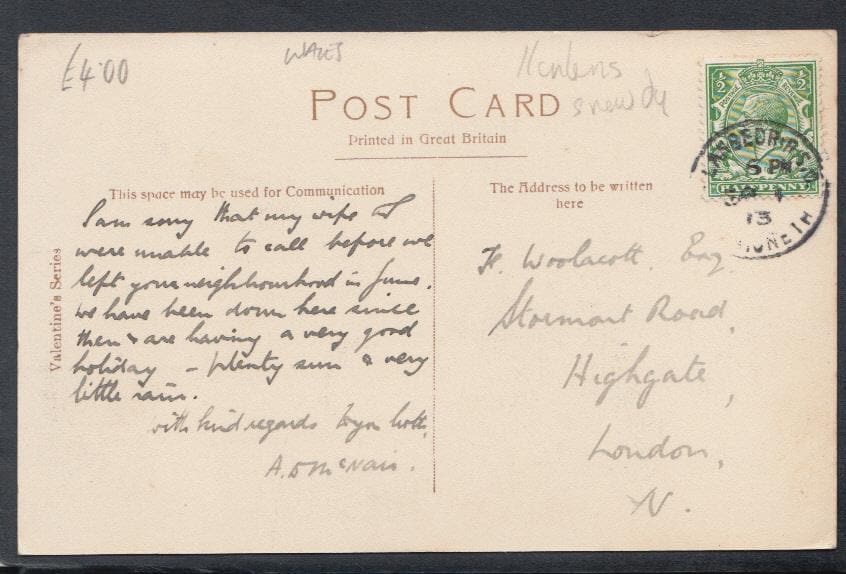 £4.00
WALES
POST CARD
Printed in Great Britain
½ ½
POSTAGE
HALFPENNY
5 PM
13
This space may be used for Communication
The Address to be written
here
Valentine's Series
I am sorry that my wife & I
were unable to call before we
left your neighbourhood in June.
We have been down here since
then & are having a very good
holiday – plenty sun & very
little rain.
with kind regards to you both,
A.D. McNair.
H. Woolacott. Esq
Stormont Road,
Highgate,
London,
N.